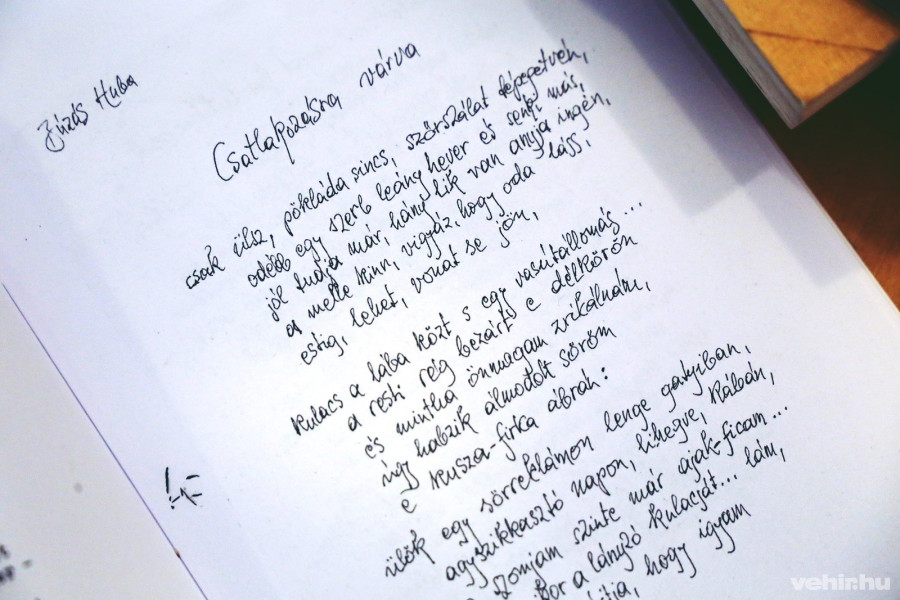 Fűzfás Huba
Csatlapozásra várva
csak ülsz, pökláda sincs, szőrszálat tépegetvén,
odébb egy szerb leány hever és senki más,
jól tudja már, hány lik van anyja ingén,
a melle kinn, vigyáz, hogy oda láss,
estig, lehet, vonat se jön,
kulacs a lába közt s egy vasútállomás...
a resti rég bezárt e délkörön
és mintha önmagam zrikálnám,
úgy habzik álmodott söröm
e kusza-firka ábrán:
ülök egy sörreklámon lenge gatyában,
agyszikkasztó napon, lihegve, kábán,
szomjam szinte már ajak-ficam...
a lányzó kulacsát... lám,
hogy igyam
vehir.hu